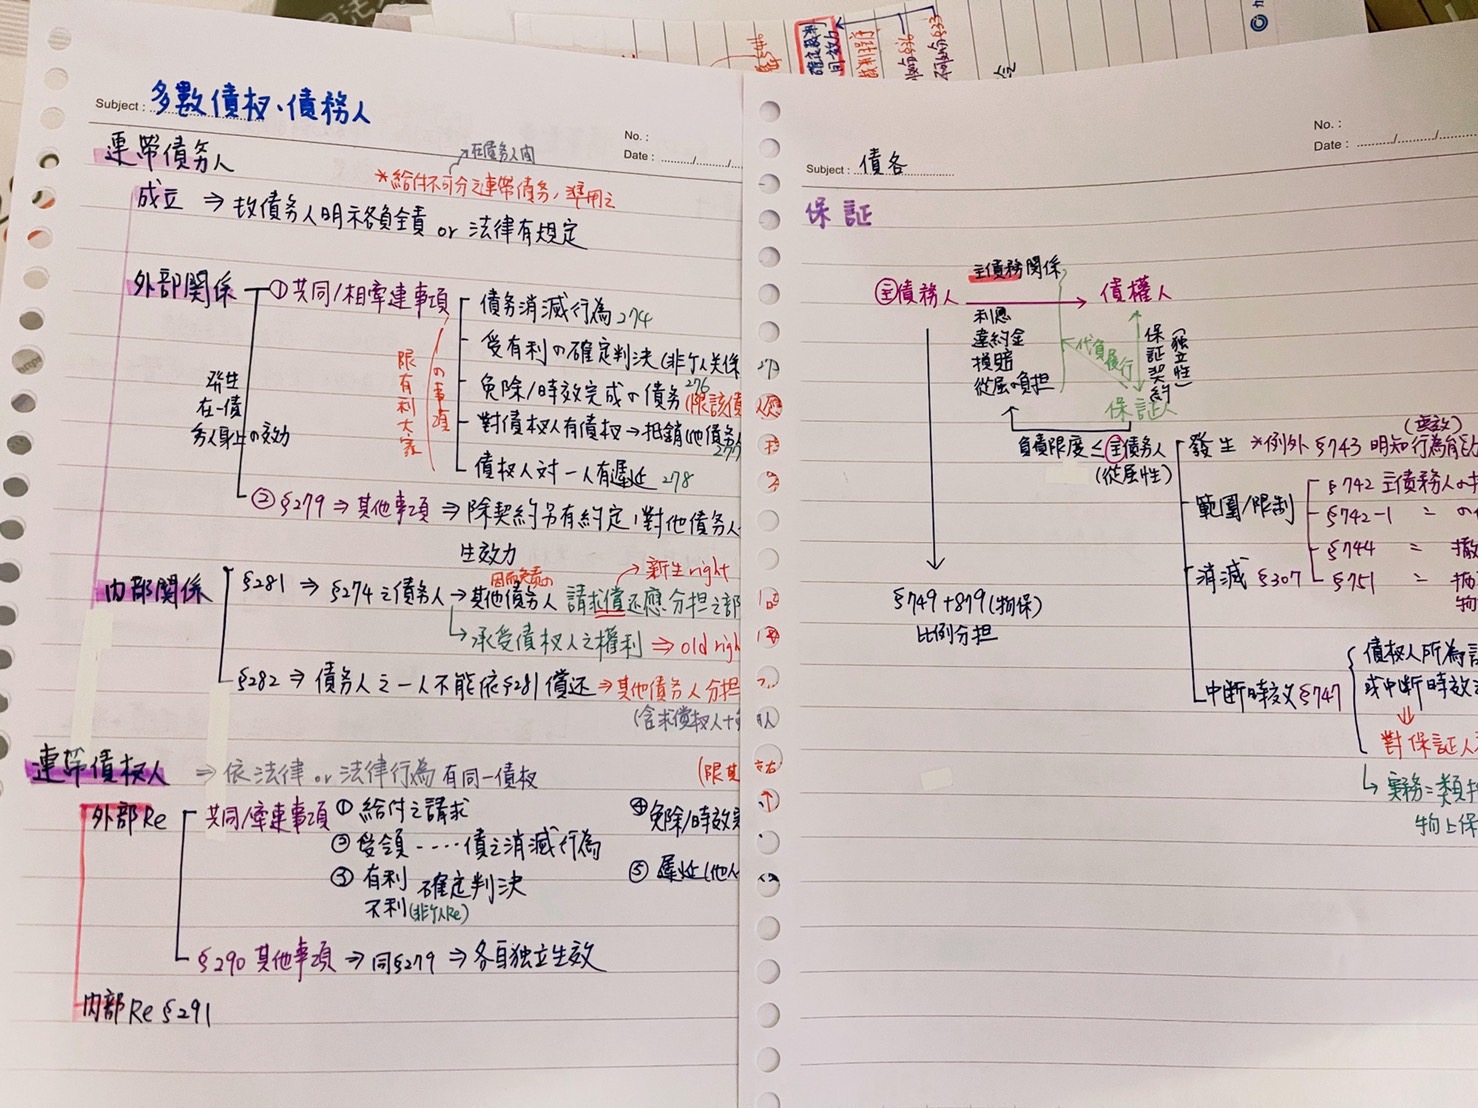 Subject: 多數債权、債務人
No.:
Date:
連帶債务人
在債务人間
*給付不可分之連帶債务,準用之
成立 ⇒ 故債务人明示各負全責 or 法律有規定
外部関係
發生在一債务人身上の效力
①共同/相牽連事項
限有利大家の事項
債务消滅行為 274
受有利の確定判決(非个人关係
免除/時效完成の債务 276 (限該債
對債权人有債权→抵銷(他債务人
277
債权人対一人有遲延 278
②§279 ⇒ 其他事項 ⇒ 除契約另有約定,對他債务人
生效力
内部関係
→新生right
因而免責の
§281 ⇒ §274之債务人→其他債务人 請求償还應分担之部
↳承受債权人之權利 ⇒ old righ
§282 ⇒ 債务人之一人不能依§281償还⇒其他債务人分担
(含求償权人+
連帶債权人 ⇒ 依法律 or 法律行為有同一債权
(限其
外部Re
共同/牽連事項 ①給付之請求
②受領‥‥債之消滅行為
③有利 確定判決
不利(非个人Re)
④免除/時效完
⑤遲延(他人
§290其他事項 ⇒ 同§279 ⇒ 各自独立生效
内部Re §291
No.:
Date:
Subject: 債各
保証
主債務関係
主債務人 → 債權人
利息
違約金
損賠
從屬の負担
代負履行
保証契約
(独立性)
保証人
負債限度≤主債务人
(從屬性)
§749+879(物保)
比例分担
發生 *例外 §743 明知行為
範圍/限制
§742 主債務人の
§742-1 = の
§744 = 撤
消滅 §307
§751 = 拋
中断時效 §747
債权人所為
或中断時效
⇓
對保証人
↳ 实務=類推
物上保